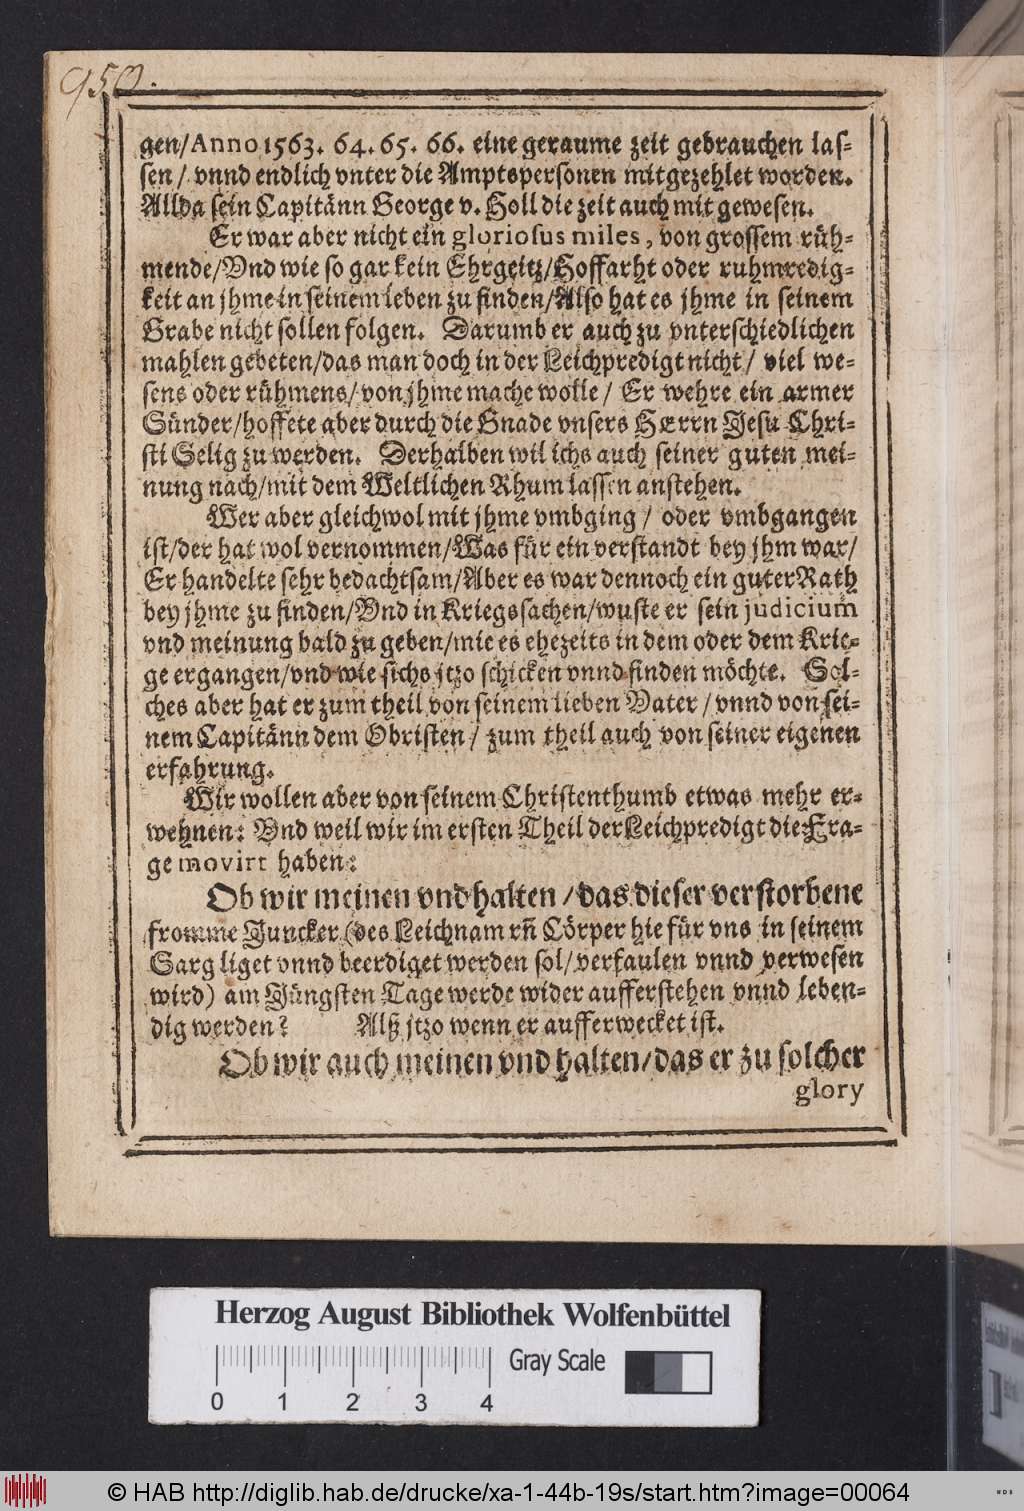 950.
gen/Anno 1563. 64. 65. 66. eine geraume zeit gebrauchen las-
sen/ vnnd endlich vnter die Amptspersonen mitgezehlet worden.
Allda sein Capitänn George v. Holl die zeit auch mit gewesen.
Er war aber nicht ein gloriosus miles, von grossem rüh-
mende/Vnd wie so gar kein Ehrgeitz/Hoffarht oder ruhmredig-
keit an jhme in seinem leben zu finden/Also hat es jhme in seinem
Grabe nicht sollen folgen. Darumb er auch zu vnterschiedlichen
mahlen gebeten/das man doch in der Leichpredigt nicht/ viel we-
sens oder rühmens/von jhme mache wolle/ Er wehre ein armer
Sünder/hoffete aber durch die Gnade vnsers HErrn Jesu Chri-
sti Selig zu werden. Derhalben wil ichs auch seiner guten mei-
nung nach/mit dem Weltlichen Rhum lassen anstehen.
Wer aber gleichwol mit jhme vmbging/ oder vmbgangen
ist/der hat wol vernommen/Was für ein verstandt bey jhm war/
Er handelte sehr bedachtsam/Aber es war dennoch ein guter Rath
bey jhme zu finden/Vnd in Kriegssachen/wuste er sein judicium
vnd meinung bald zu geben/wie es ehezeits in dem oder dem Krie-
ge ergangen/vnd wie sichs jtzo schicken vnnd finden möchte. Sol-
ches aber hat er zum theil von seinem lieben Vater/ vnnd von sei-
nem Capitänn dem Obristen/ zum theil auch von seiner eigenen
erfahrung.
Wir wollen aber von seinem Christenthumb etwas mehr er-
wehnen: Vnd weil wir im ersten Theil der Leichpredigt die Fra-
ge movirt haben:
Ob wir meinen vnd halten/das dieser verstorbene
fromme Juncker (des Leichnam vñ Cörper hie für vns in seinem
Sarg liget vnnd beerdiget werden sol/verfaulen vnnd verwesen
wird) am Jüngsten Tage werde wider aufferstehen vnnd leben-
dig werden? Alß jtzo wenn er aufferwecket ist.
Ob wir auch meinen vnd halten/das er zu solcher
glory
Herzog August Bibliothek Wolfenbüttel
Gray Scale
0 1 2 3 4
© HAB http://diglib.hab.de/drucke/xa-1-44b-19s/start.htm?image=00064